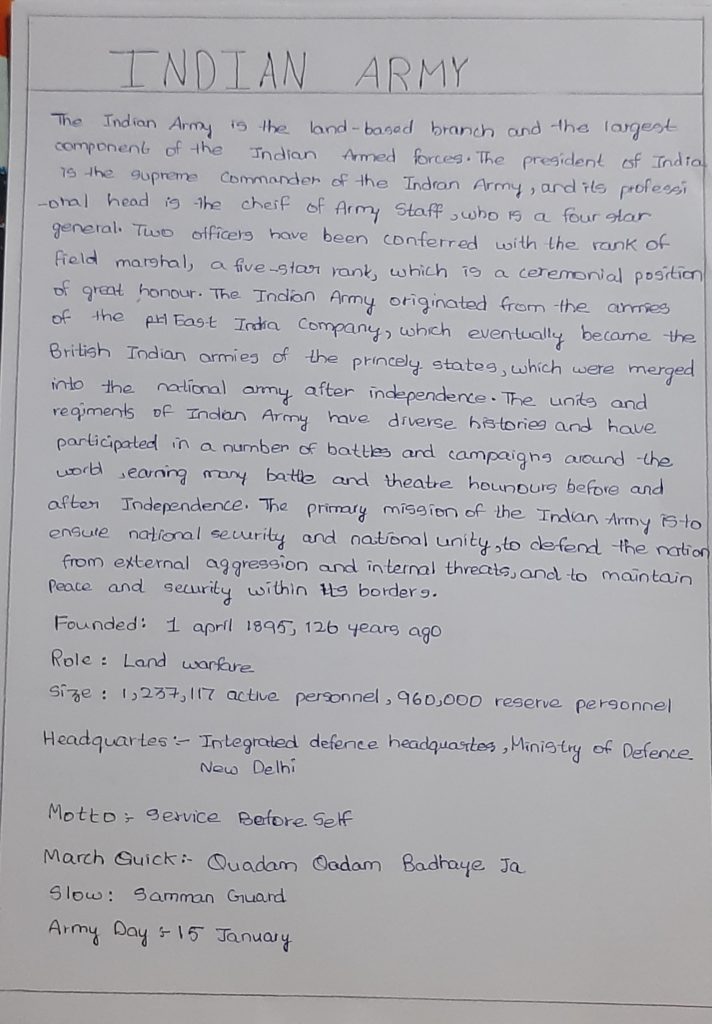 INDIAN ARMY
The Indian Army is the land-based branch and the largest
component of the Indian Armed forces. The president of India
is the supreme Commander of the Indian Army, and its professi
-onal head is the cheif of Army Staff, who is a four star
general. Two officers have been conferred with the rank of
field marshal, a five-star rank, which is a ceremonial position
of great honour. The Indian Army originated from the armies
of the East India Company, which eventually became the
British Indian armies of the princely states, which were merged
into the national army after independence. The units and
regiments of Indian Army have diverse histories and have
participated in a number of battles and campaigns around the
world, earning many battle and theatre hounours before and
after Independence. The primary mission of the Indian Army is to
ensure national security and national unity, to defend the nation
from external aggression and internal threats, and to maintain
Peace and security within its borders.
Founded: 1 april 1895, 126 years ago
Role: Land warfare
Size: 1,237,117 active personnel, 960,000 reserve personnel
Headquartes:- Integrated defence headquartes, Ministry of Defence
New Delhi
Motto:- Service Before Self
March Quick:- Quadam Qadam Badhaye Ja
Slow: Samman Guard
Army Day :- 15 January